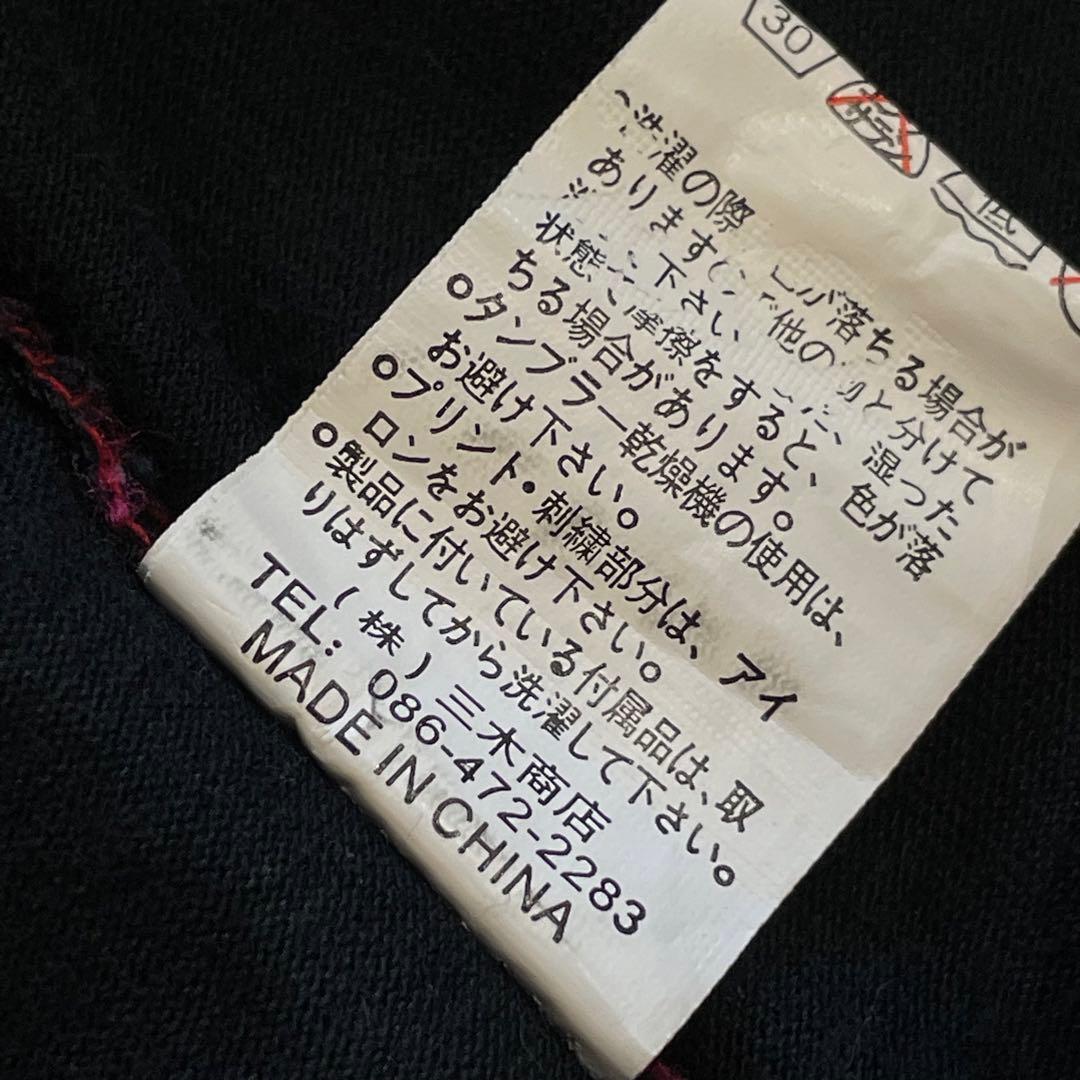 30
低
洗濯の際 が落ちる場合が
あります 他の と分けて
下さい 、湿った
状態で摩擦をすると、色が落
ちる場合があります。
○タンブラー乾燥機の使用は、
お避け下さい。
○プリント・刺繍部分は、アイ
ロンをお避け下さい。
○製品に付いている付属品は、取
りはずしてから洗濯して下さい。
(株)三木商店
TEL: 086-472-2283
MADE IN CHINA